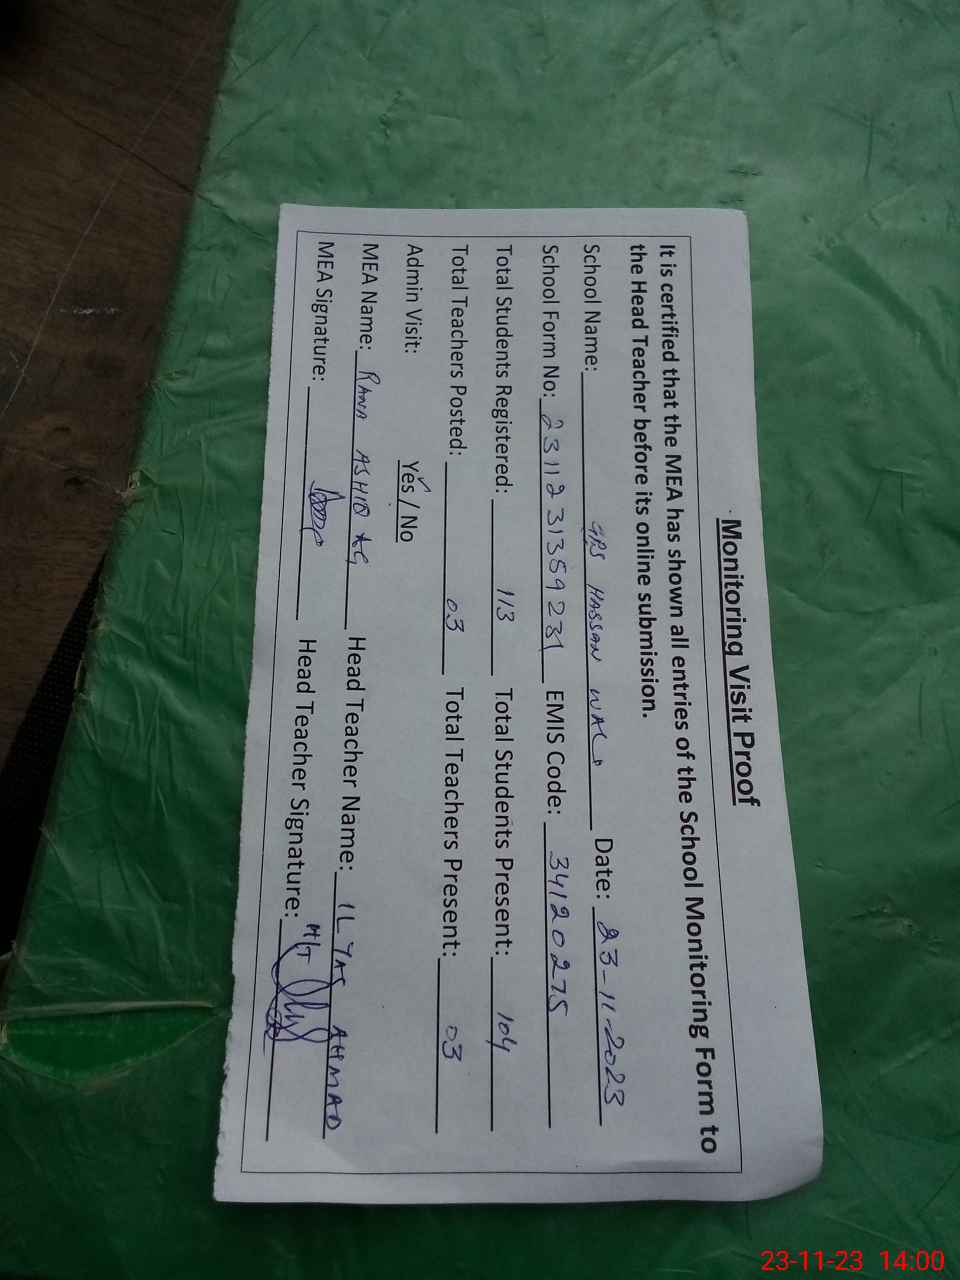 Monitoring Visit Proof
It is certified that the MEA has shown all entries of the School Monitoring Form to
the Head Teacher before its online submission.
School Name: GPS HASSAN WALA Date: 23-11-2023
School Form No: 2311231359231 EMIS Code: 34120275
Total Students Registered: 113 Total Students Present: 104
Total Teachers Posted: 03 Total Teachers Present: 03
Admin Visit: Yes / No
MEA Name: RANA ASHIQ Head Teacher Name: ILYAS AHMAD
MEA Signature: Head Teacher Signature: H/T
23-11-23 14:00